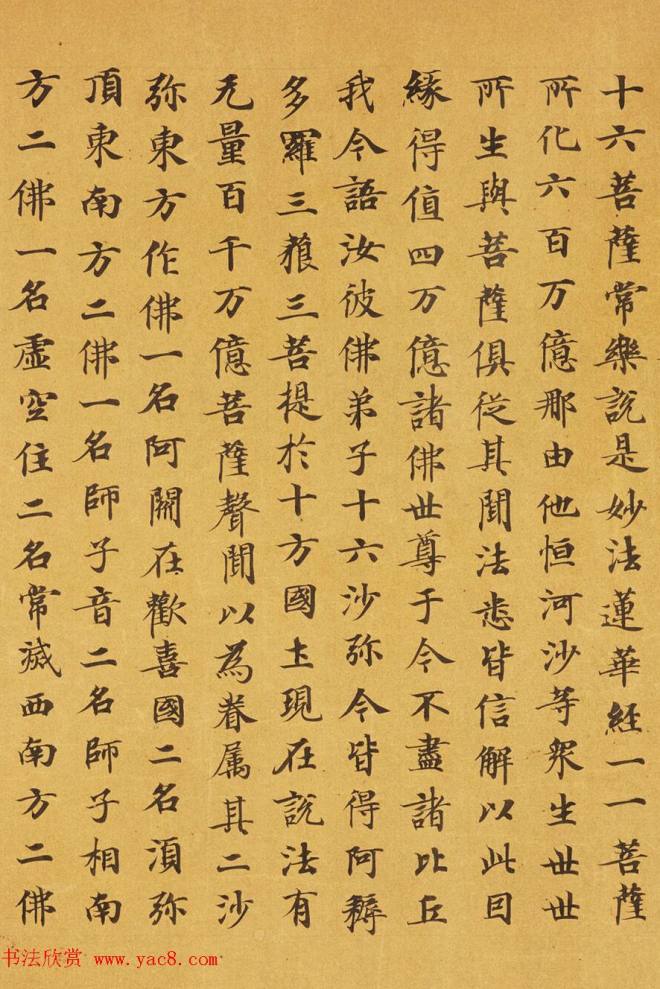 十六菩薩常樂説是妙法蓮華經一一菩薩
所化六百万億那由他恒河沙等衆生世世
所生與菩薩俱從其聞法悉皆信解以此因
緣得值四万億諸佛世尊于今不盡諸比丘
我今語汝彼佛弟子十六沙弥今皆得阿耨
多羅三藐三菩提於十方國土現在説法有
无量百千万億菩薩聲聞以為眷属其二沙
弥東方作佛一名阿閦在歡喜國二名湏弥
頂東南方二佛一名師子音二名師子相南
方二佛一名虚空住二名常滅西南方二佛
书法欣赏 www.yac8.com